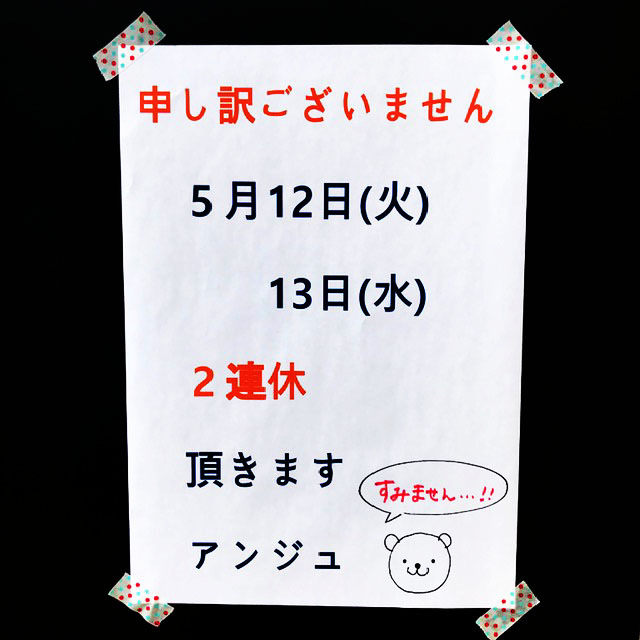 申し訳ございません
5月12日(火)
13日(水)
2連休
頂きます
すみません…!!
アンジュ